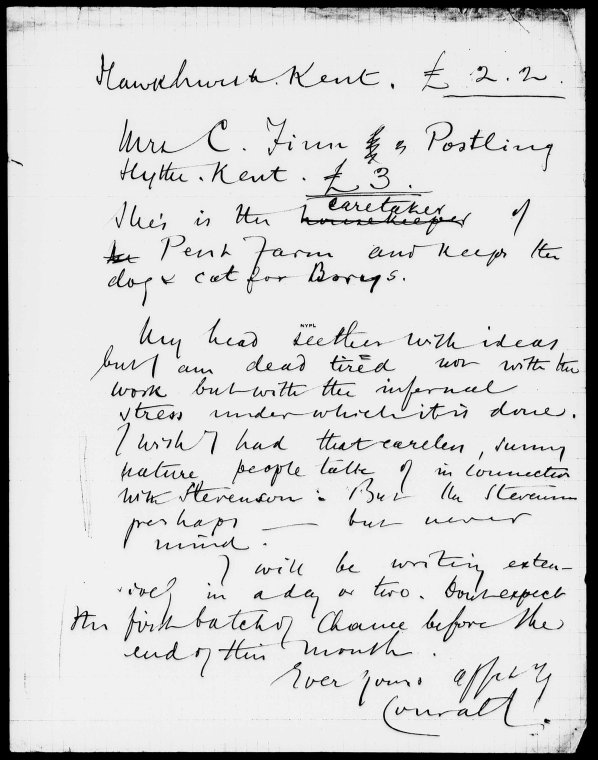 Hawkhurst. Kent. £ 2.2.
Mrs C. Finn Postling
Hythe. Kent. £ 3.
caretaker
She's is the housekeeper of
Pent Farm and keeps the
dog & cat for Borys.
NYPL
My head seethes with ideas
but I am dead tired not with the
work but with the infernal
stress under which it is done.
I wish I had that careless, sunny
nature people talk of in connection
with Stevenson: But the Stevenson
perhaps — but never
mind.
I will be writing exten-
sively in a day or two. Dont expect
the first batch of Chance before the
end of this month.
Ever yours affctly
Conrad.